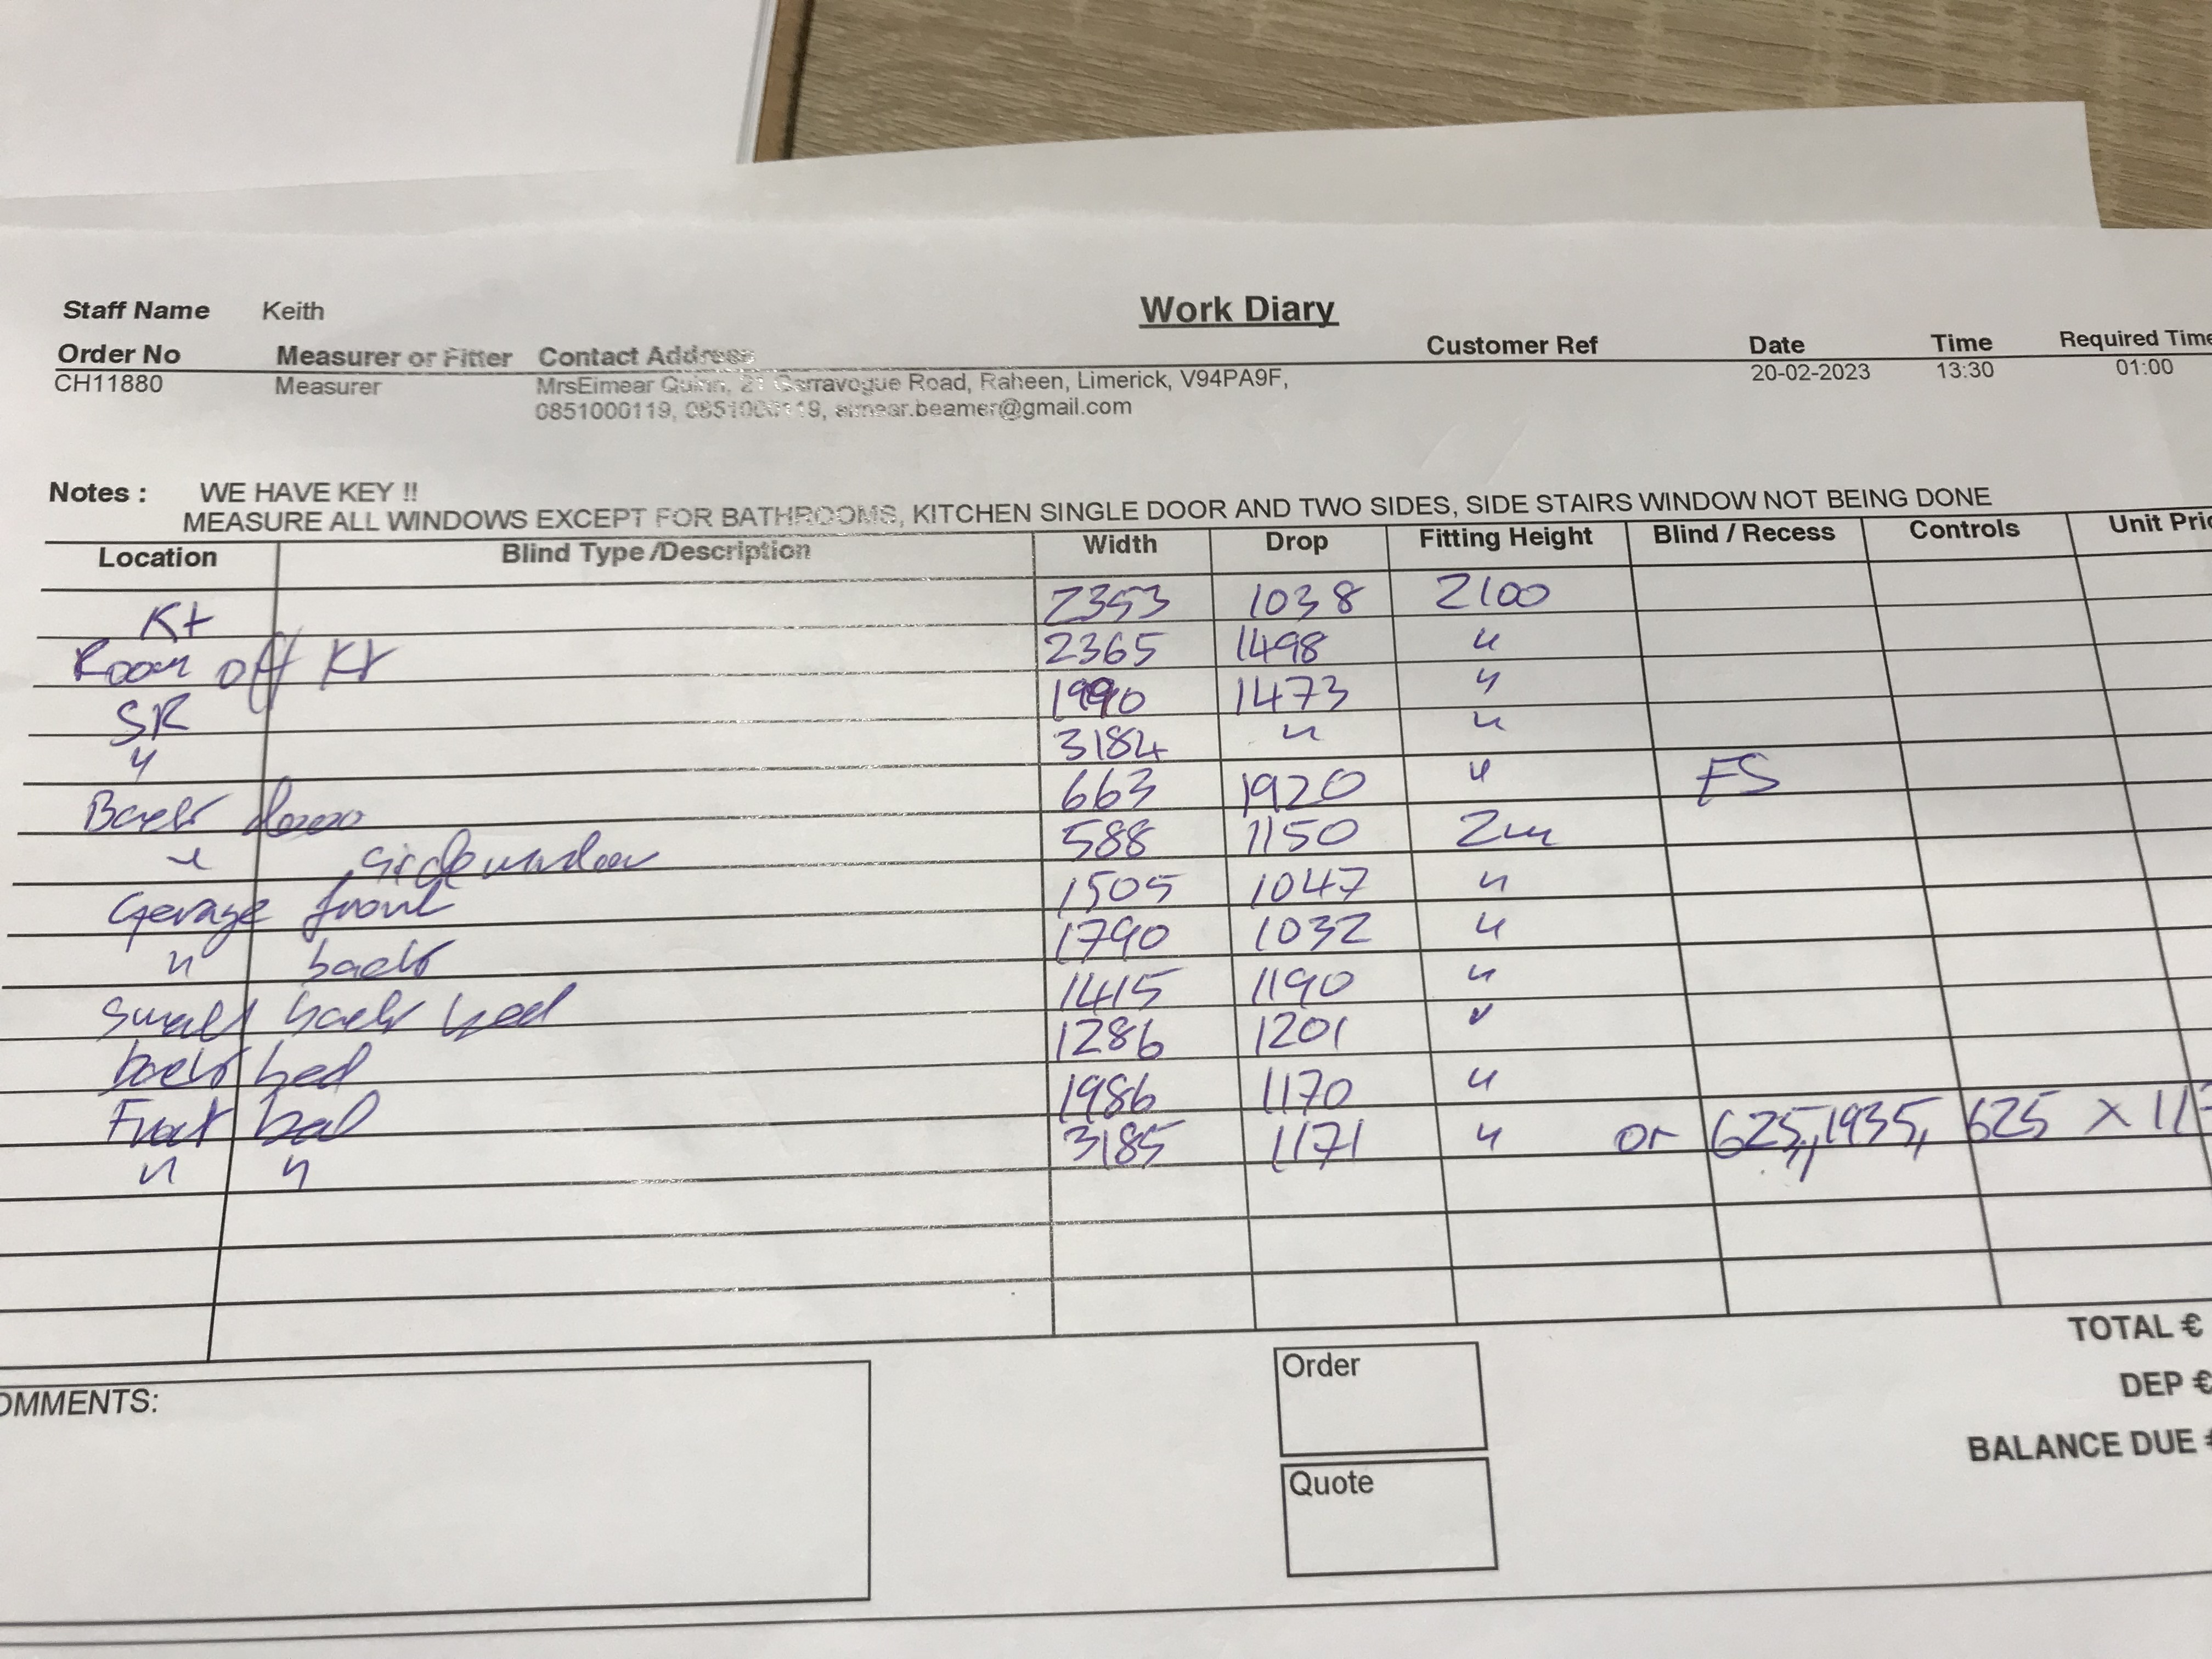 Work Diary
Staff Name Keith
Order No Measurer or Fitter Contact Address Customer Ref Date Time Required Time
CH11880 Measurer MrsEimear Quinn, 21 Garravogue Road, Raheen, Limerick, V94PA9F, 20-02-2023 13:30 01:00
0851000119, 0851000119, eimear.beamer@gmail.com
Notes : WE HAVE KEY !!
MEASURE ALL WINDOWS EXCEPT FOR BATHROOMS, KITCHEN SINGLE DOOR AND TWO SIDES, SIDE STAIRS WINDOW NOT BEING DONE
Location Blind Type /Description Width Drop Fitting Height Blind / Recess Controls Unit Pric
Kt 2353 1038 2100
Room off Kt 2365 1498 "
SR 1990 1473 "
" 3184 " "
Back door 663 1920 " FS
" side window 588 1150 2m
Garage front 1505 1047 "
" back 1790 1032 "
Small back bed 1415 1190 "
back bed 1286 1201 "
Front bed 1986 1170 "
" " 3185 1171 " or 625, 1935, 625 X 117
OMMENTS:
Order
Quote
TOTAL €
DEP €
BALANCE DUE €